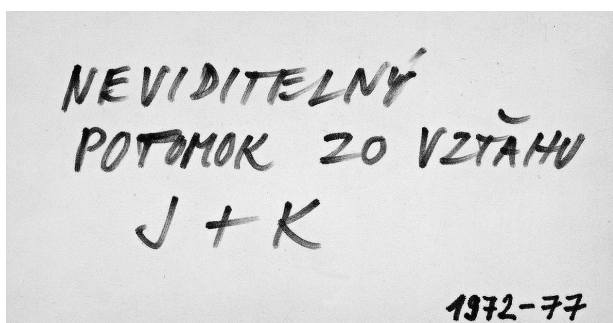 NEVIDITELNÝ
POTOMOK ZO VZŤAHU
J + K
1972-77